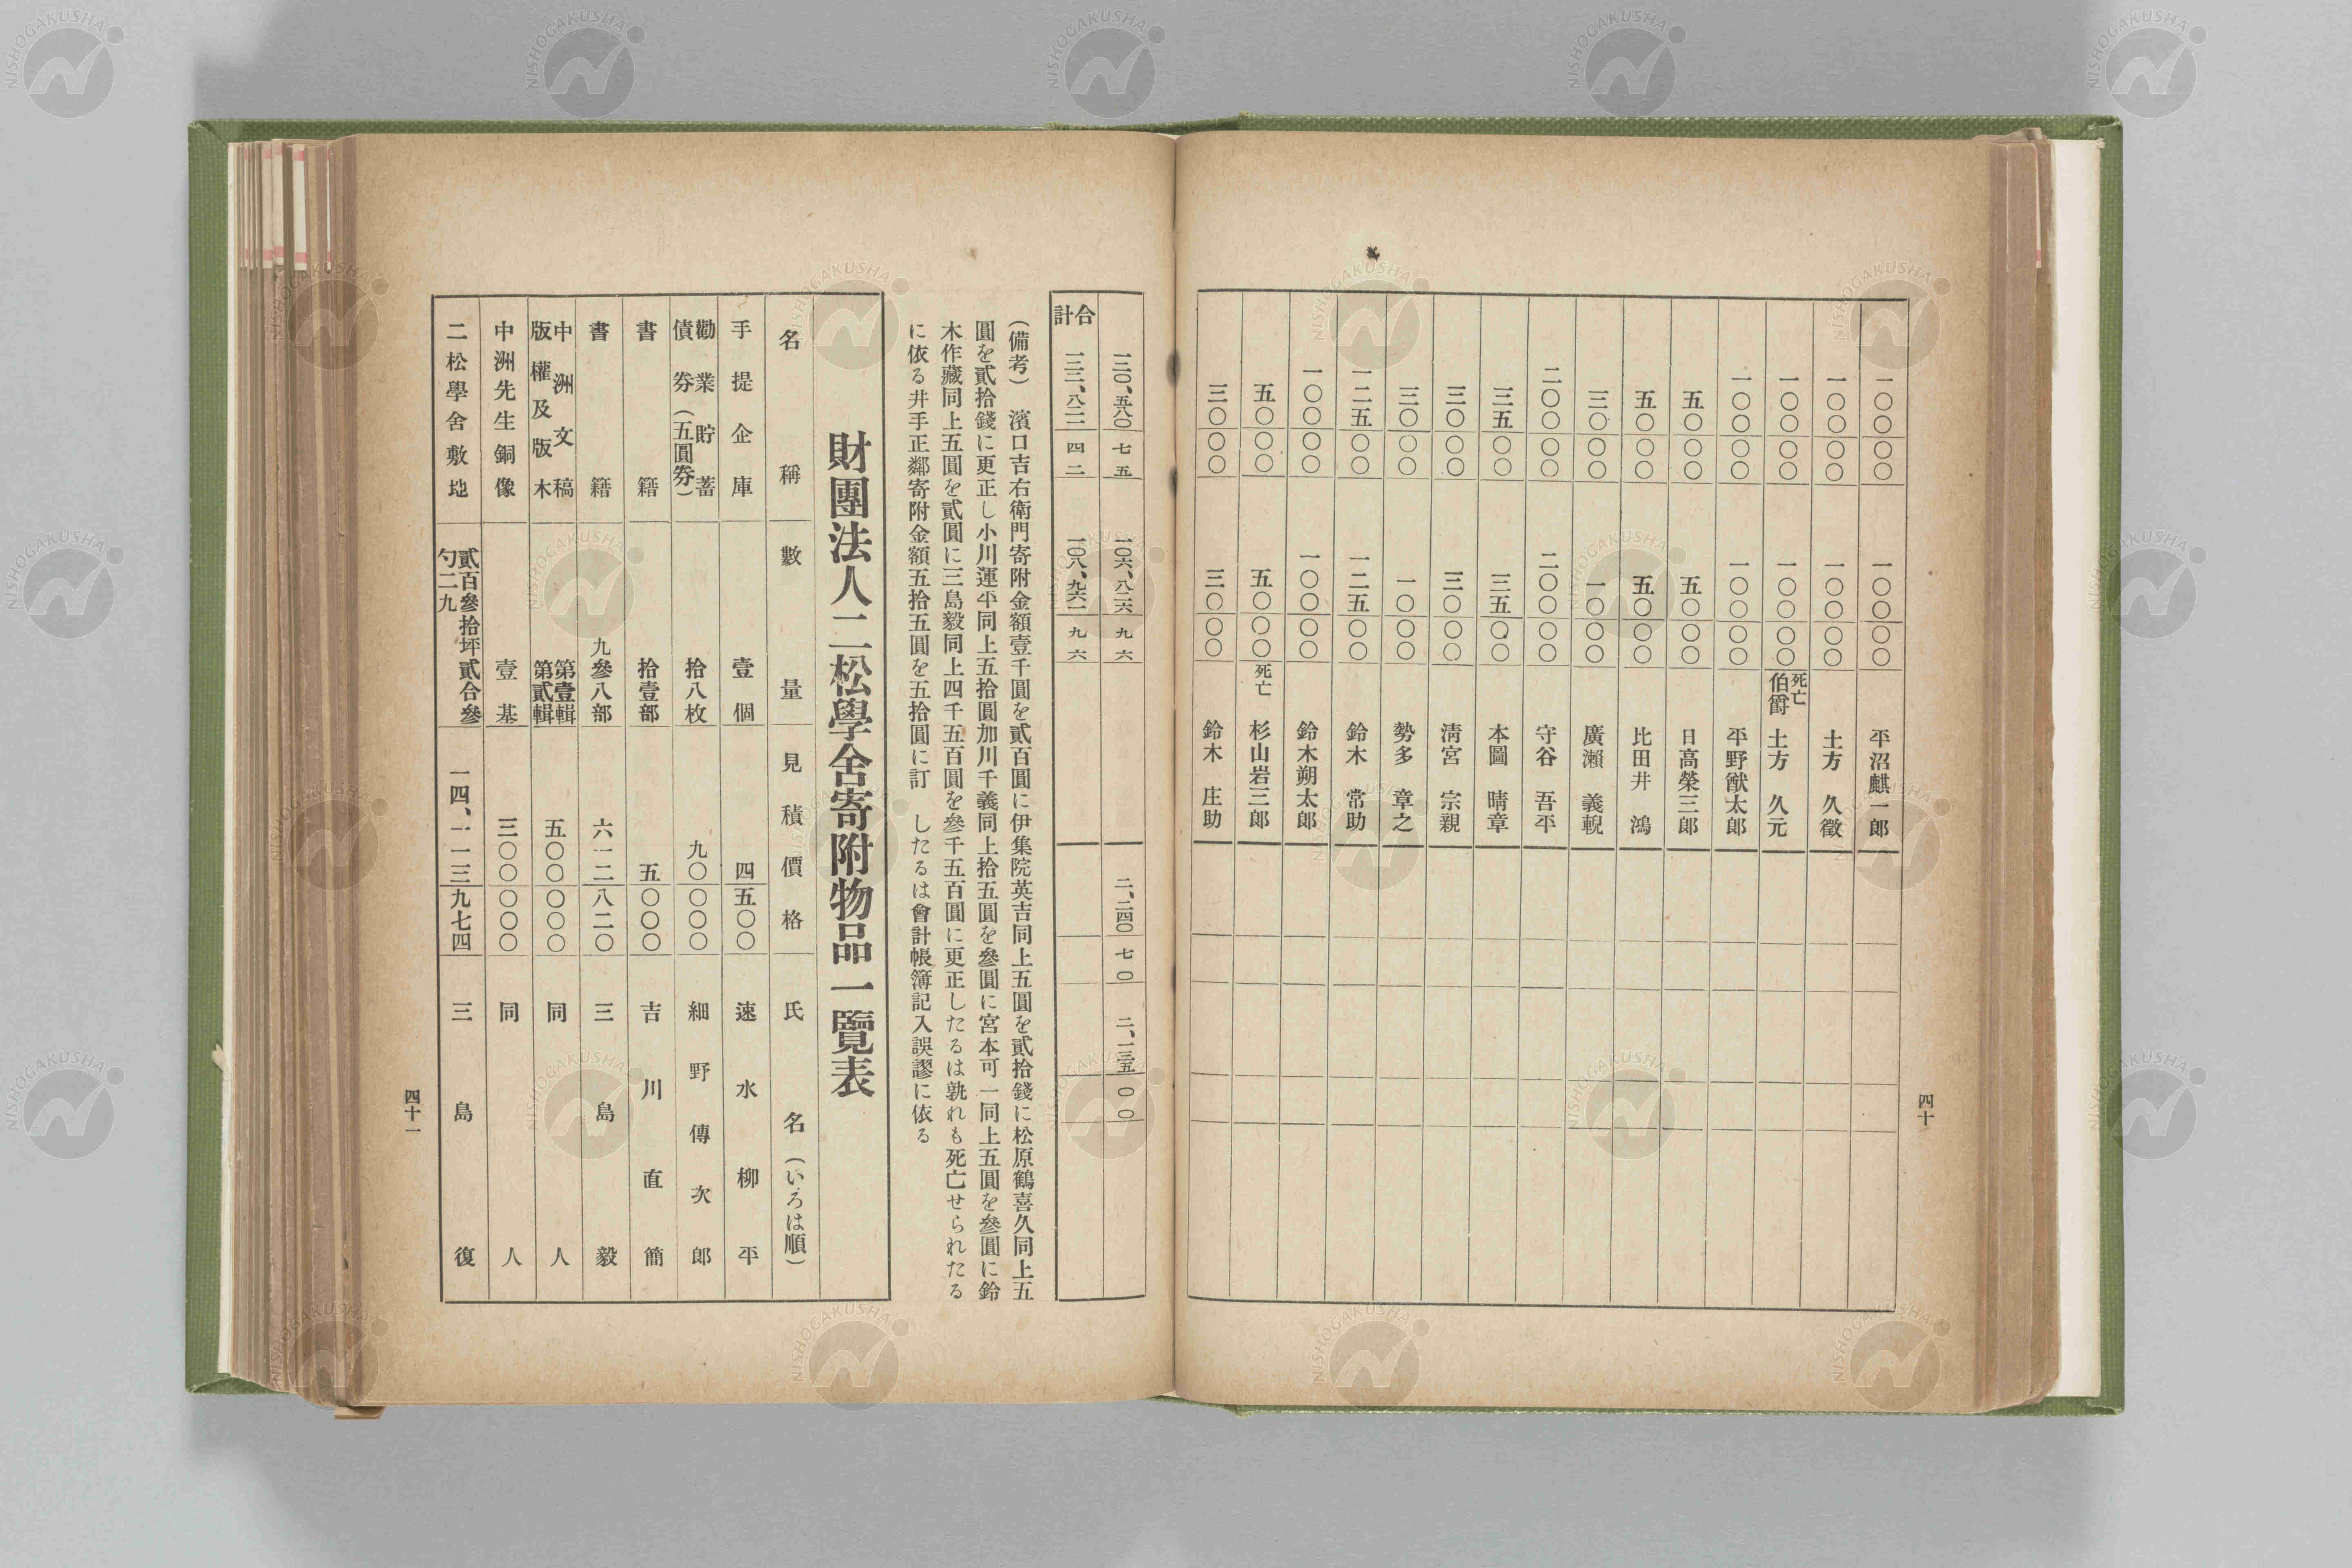 四十
一〇〇〇〇 一〇〇〇〇 平沼麒一郎
一〇〇〇〇 一〇〇〇〇 土方久徵
一〇〇〇〇 一〇〇〇〇 死亡 伯爵 土方久元
一〇〇〇〇 一〇〇〇〇 平野猷太郎
五〇〇〇 五〇〇〇 日高榮三郎
五〇〇〇 五〇〇〇 比田井鴻
三〇〇〇 一〇〇〇 廣瀨義輗
二〇〇〇〇 二〇〇〇〇 守谷吾平
三五〇〇 三五〇〇 本圖晴章
三〇〇〇 三〇〇〇 淸宮宗親
三〇〇〇 一〇〇〇 勢多章之
一二五〇〇 一二五〇〇 鈴木常助
一〇〇〇〇 一〇〇〇〇 鈴木朔太郎
五〇〇〇 五〇〇〇 死亡 杉山岩三郎
三〇〇〇 三〇〇〇 鈴木庄助
一三〇、五八〇 七五 一〇六、八二六 九六 二、二四〇 七〇 二、一三五 〇〇
合計 一三二、八二一 四二 一〇八、九六一 九六
(備考) 濱口吉右衛門寄附金額壹千圓を貳百圓に伊集院英吉同上五圓を貳拾錢に松原鶴喜久同上五
圓を貳拾錢に更正し小川運平同上五拾圓加川千義同上拾五圓を參圓に宮本可一同上五圓を參圓に鈴
木作藏同上五圓を貳圓に三島毅同上四千五百圓を參千五百圓に更正したるは孰れも死亡せられたる
に依る井手正鄰寄附金額五拾五圓を五拾圓に訂 したるは會計帳簿記入誤謬に依る
財團法人二松學舍寄附物品一覽表
名稱 數量 見積價格 氏名(いろは順)
手提企庫 壹個 四五〇〇 速水柳平
勸業貯蓄債券(五圓券) 拾八枚 九〇〇〇〇 細野傳次郎
書籍 拾壹部 五〇〇〇 吉川直簡
書籍 九參八部 六一二八二〇 三島毅
中洲文稿版權及版木 第壹輯第貳輯 五〇〇〇〇〇 同人
中洲先生銅像 壹基 三〇〇〇〇〇 同人
二松學舍敷地 貳百參拾坪貳合參勺二九 一四、一一三九七四 三島復
四十一
NISHOGAKUSHA